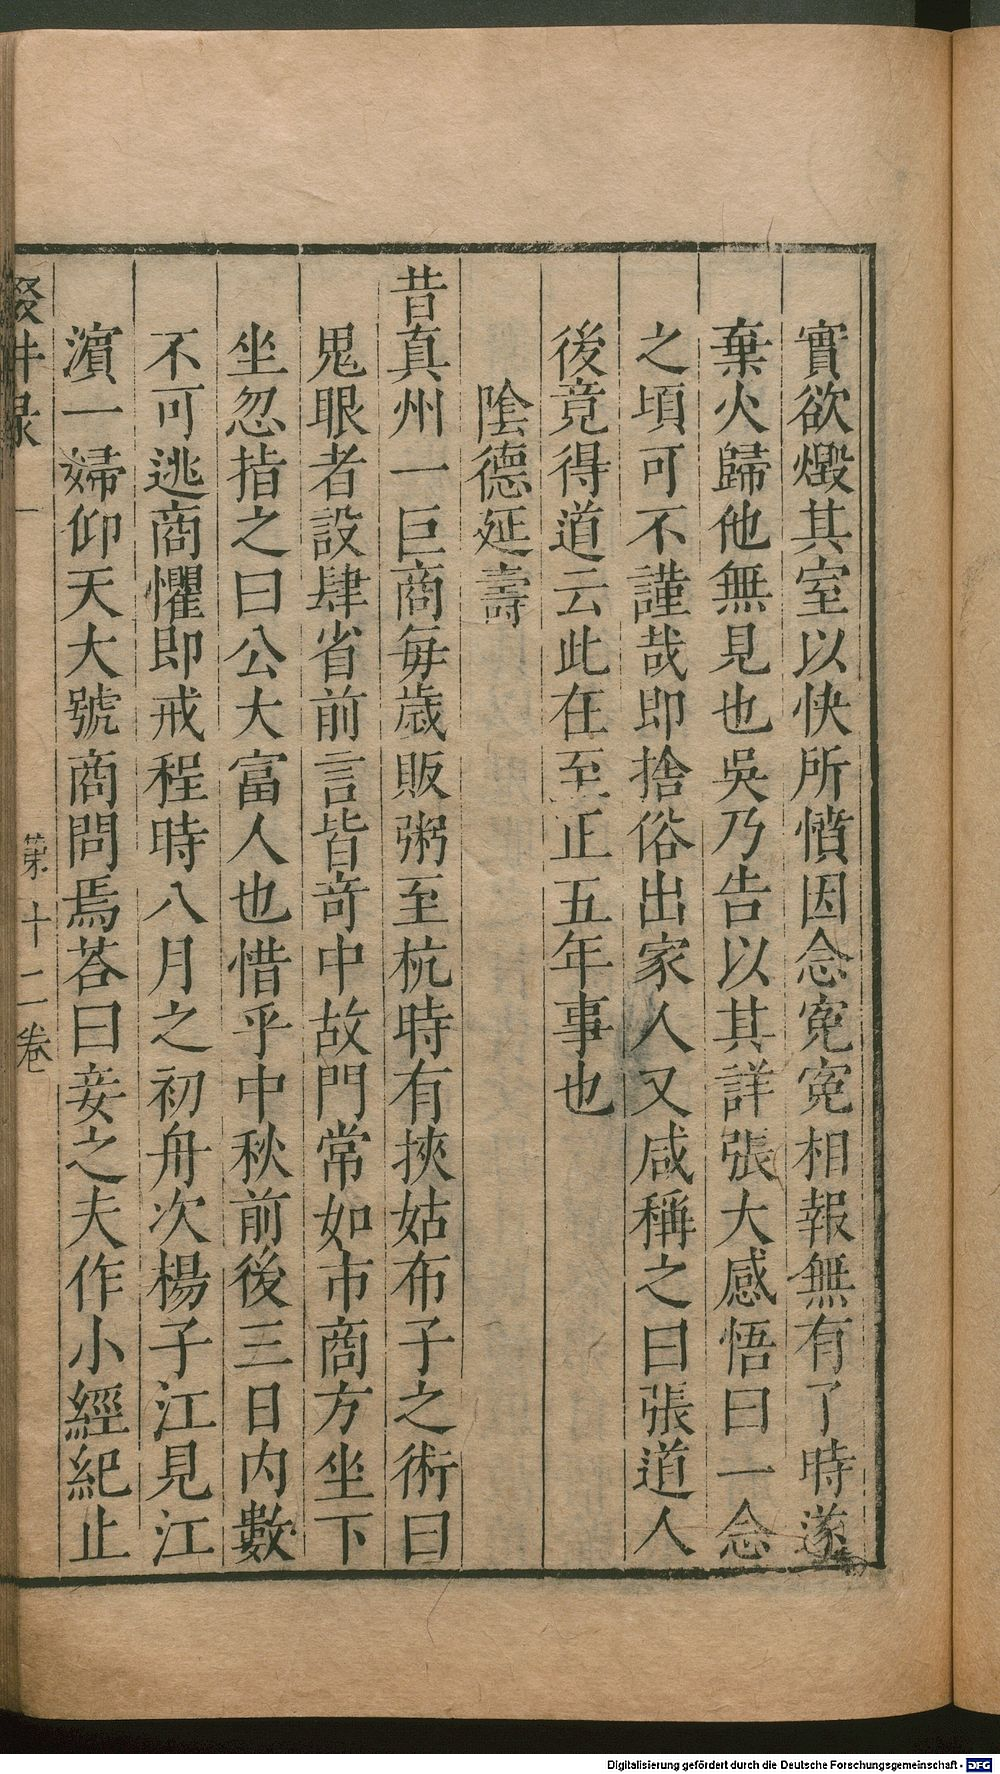 實欲燬其室以快所憤因念寃寃相報無有了時遂
棄火歸他無見也吳乃告以其詳張大感悟曰一念
之頃可不謹哉即捨俗出家人又咸稱之曰張道人
後竟得道云此在至正五年事也
陰德延壽
昔真州一巨商每歲販粥至杭時有挾姑布子之術曰
鬼眼者設肆省前言皆竒中故門常如市商方坐下
坐忽指之曰公大富人也惜乎中秋前後三日内數
不可逃商懼即戒程時八月之初舟次楊子江見江
濵一婦仰天大號商問焉荅曰妾之夫作小經紀止
輟畊录 第十二卷
Digitalisierung gefördert durch die Deutsche Forschungsgemeinschaft - DFG